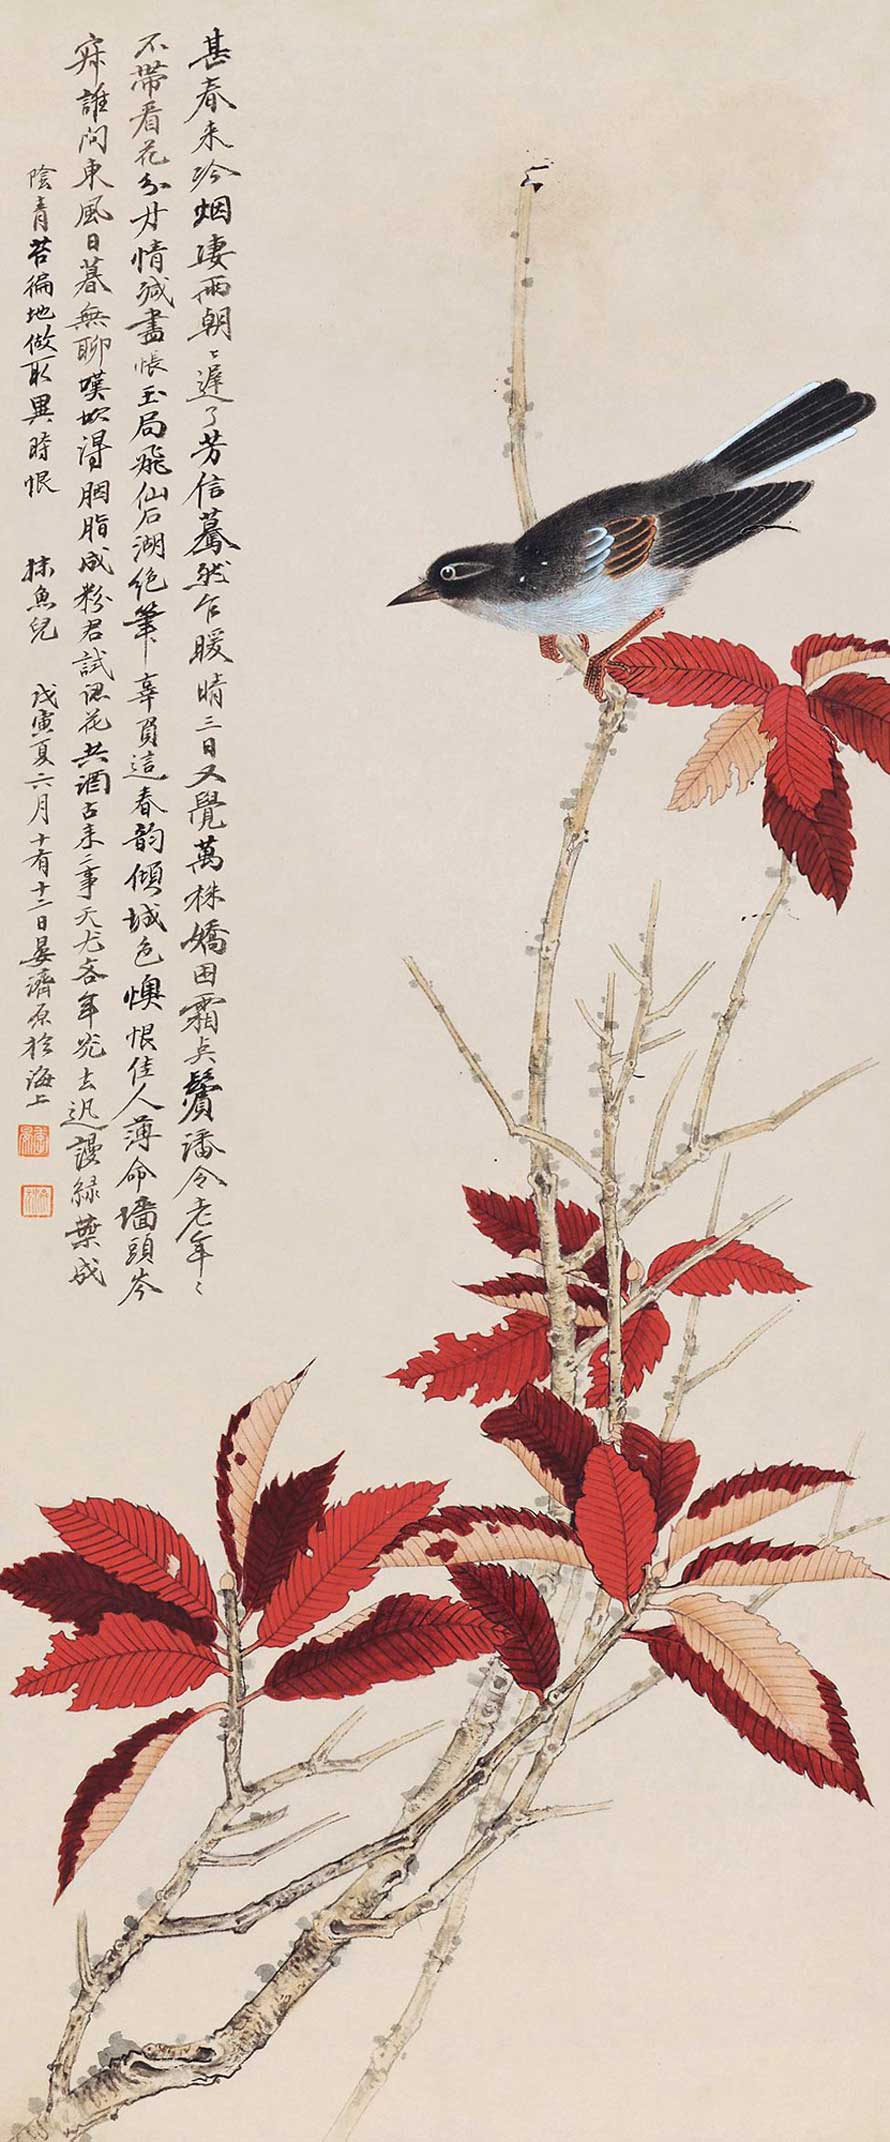 甚春来冷烟凄雨朝〻遲了芳信蓦然乍暖晴三日又覺萬株嬌困霜点鬢潘令老年〻
不带看花分才情减盡悵玉局飛仙石湖绝筆辜負這春韵傾城色懊恨佳人薄命墙頭岑
寂誰问東風日暮無聊嘆吹得胭脂成粉君試认花共酒古来二事天尤吝年光去迅謾緑葉成
陰青苔徧地做取異時恨 抹魚兒 戊寅夏六月十有十二日晏濟原於海上